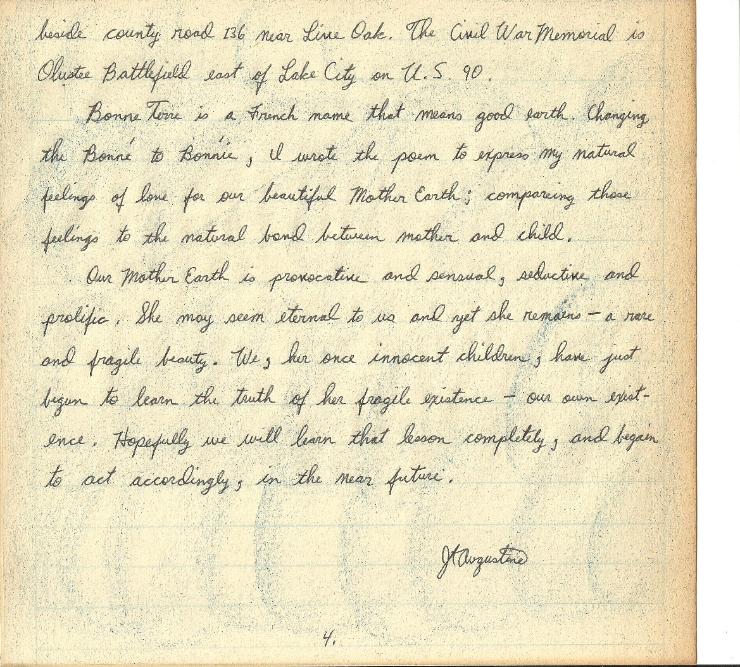 beside county road 136 near Live Oak. The Civil War Memorial is
Olustee Battlefield east of Lake City on U.S. 90.
Bonne Terre is a French name that means good earth. Changing
the Bonné to Bonnie, I wrote the poem to express my natural
feelings of love for our beautiful Mother Earth; compareing those
feelings to the natural bond between mother and child.
Our Mother Earth is provocative and sensual, seductive and
prolific. She may seem eternal to us and yet she remains — a rare
and fragile beauty. We, her once innocent children, have just
begun to learn the truth of her fragile existence — our own exist-
ence. Hopefully we will learn that lesson completely, and begain
to act accordingly, in the near future.
Jt Augustine
4.